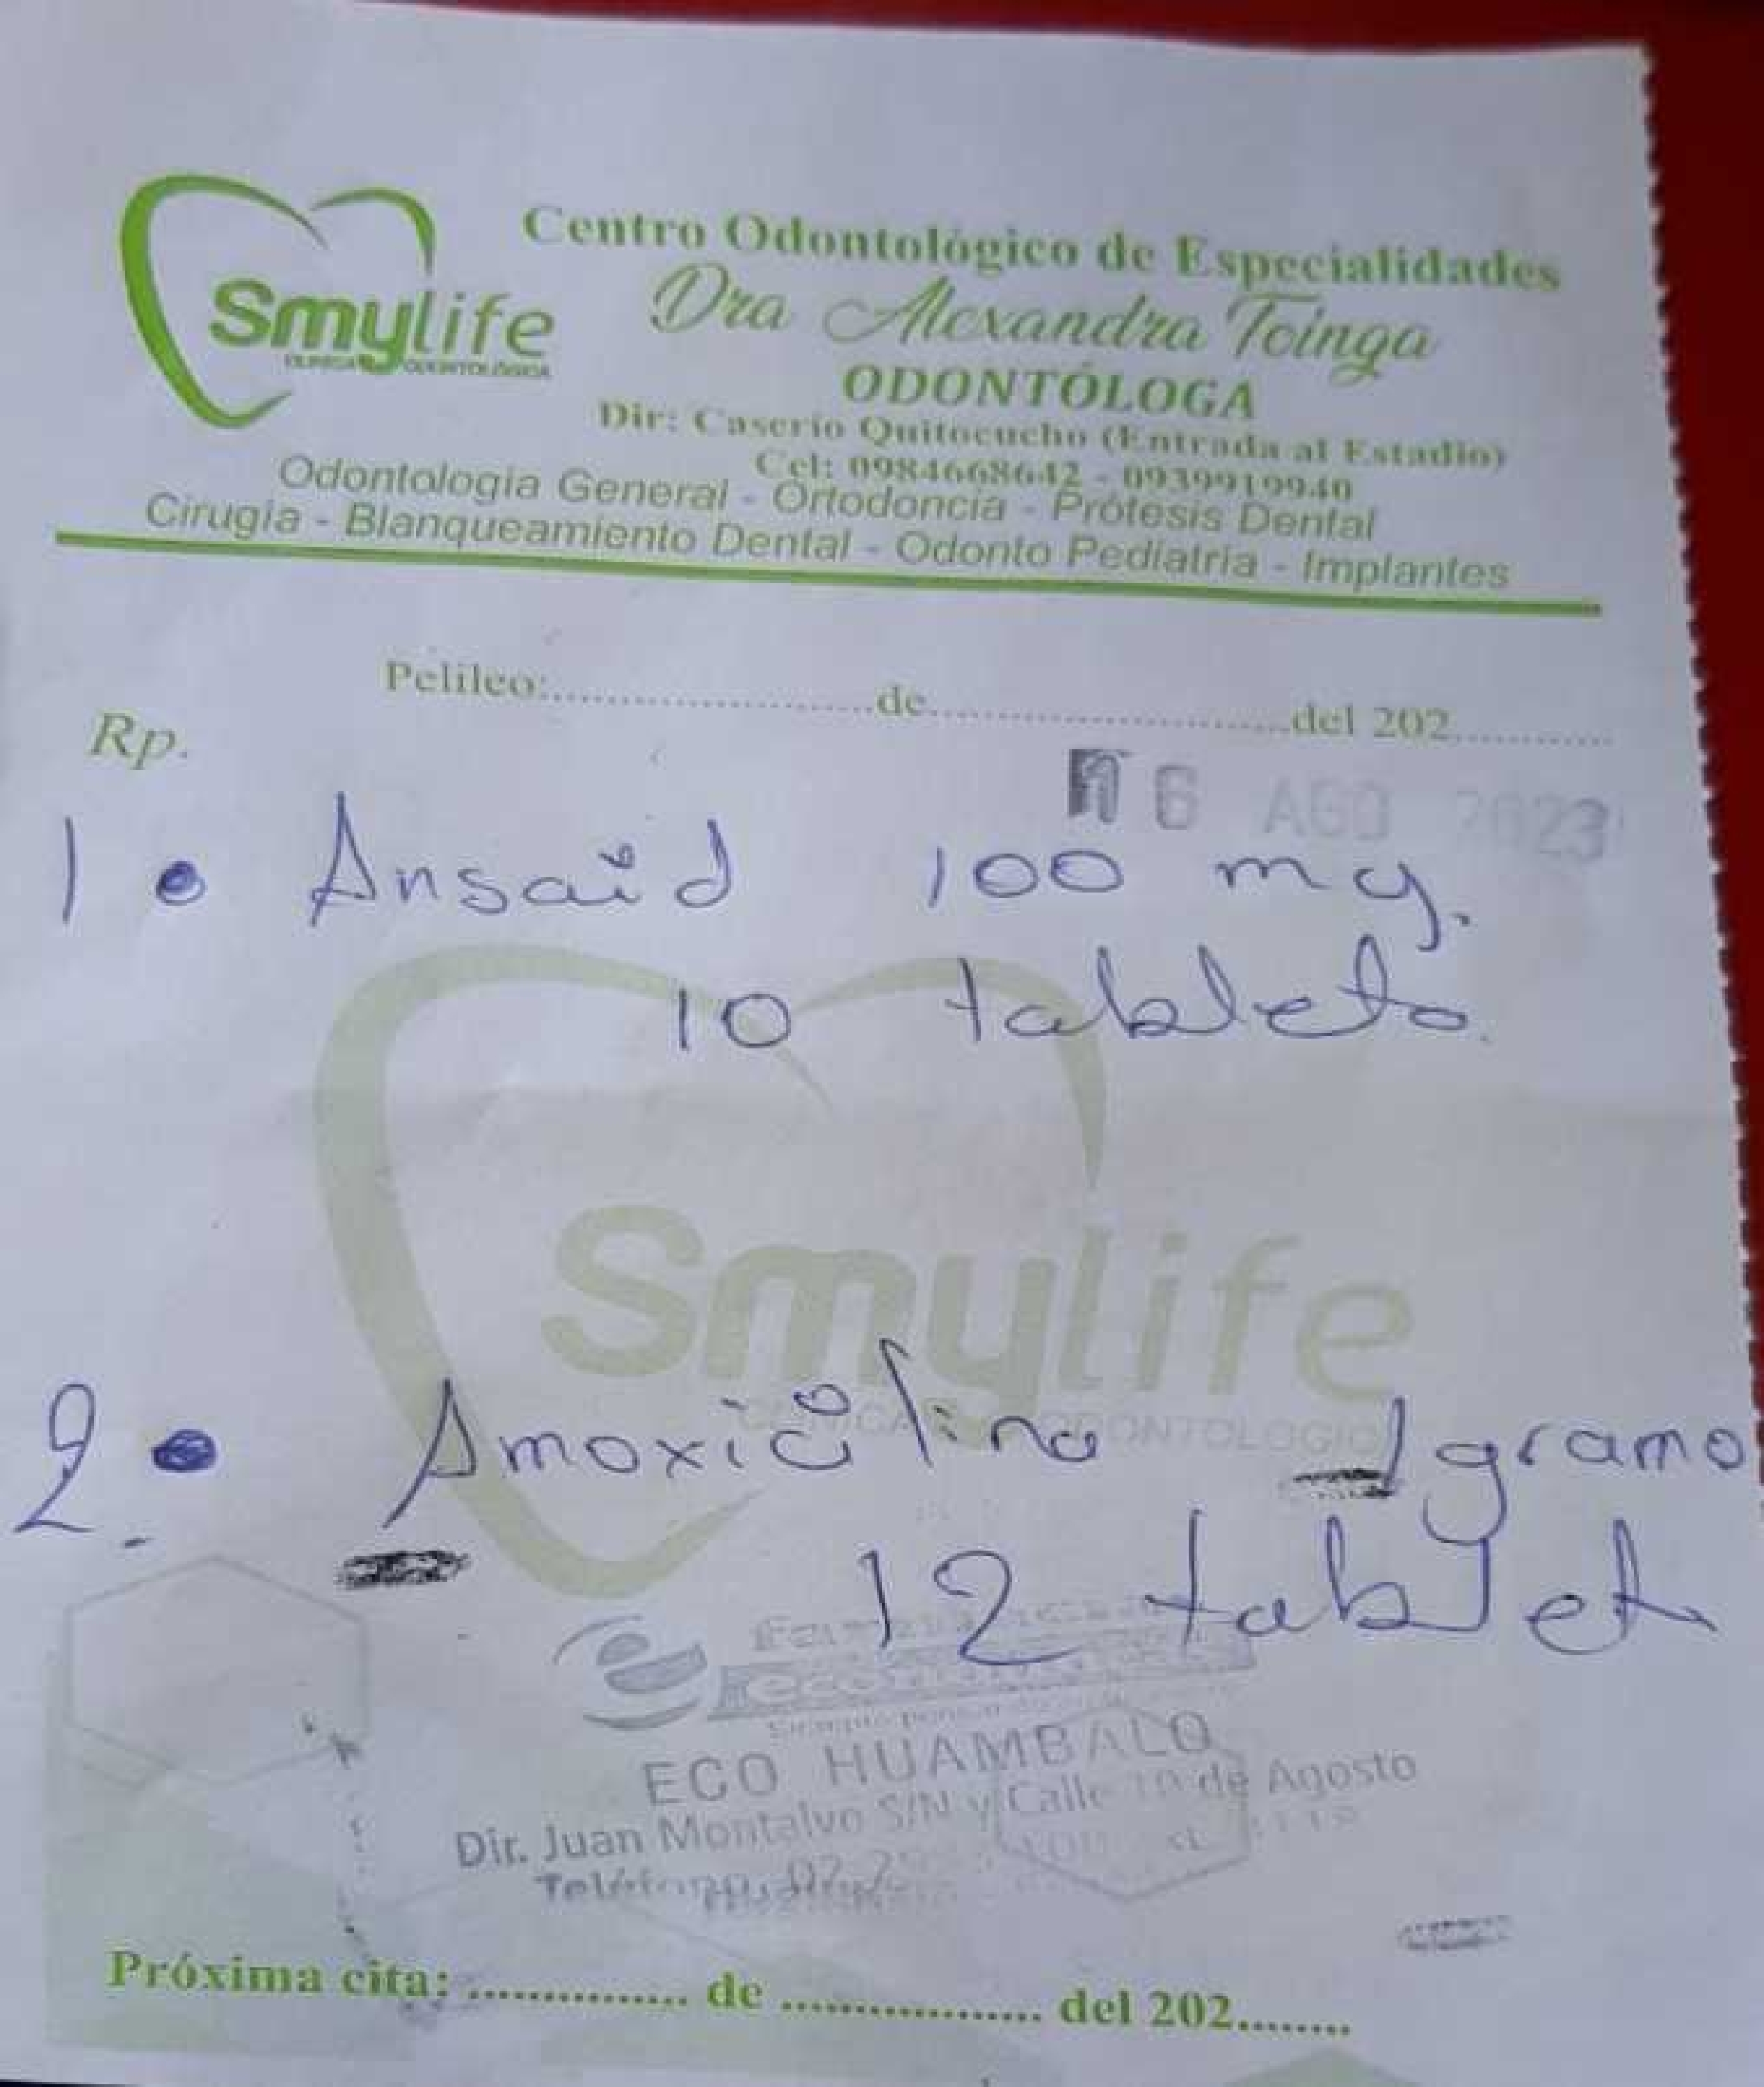 Smylife
CLINICA ODONTOLÓGICA
Centro Odontológico de Especialidades
Dra Alexandra Toinga
ODONTÓLOGA
Dir: Caserío Quitocucho (Entrada al Estadio)
Cel: 0984668642 - 0939919940
Odontologia General - Ortodoncia - Prótesis Dental
Cirugía - Blanqueamiento Dental - Odonto Pediatria - Implantes
Pelileo:........................de...........................del 202............
Rp.
16 AGO 2023
1. Ansaid 100 mg.
10 tablets.
Smylife
CLINICA ODONTOLOGIC
2. Amoxicilina 1 gramo
12 tablet
ECO HUAMBALO
Dir. Juan Montalvo S/N y Calle 10 de Agosto
Próxima cita: ............... de .................. del 202........